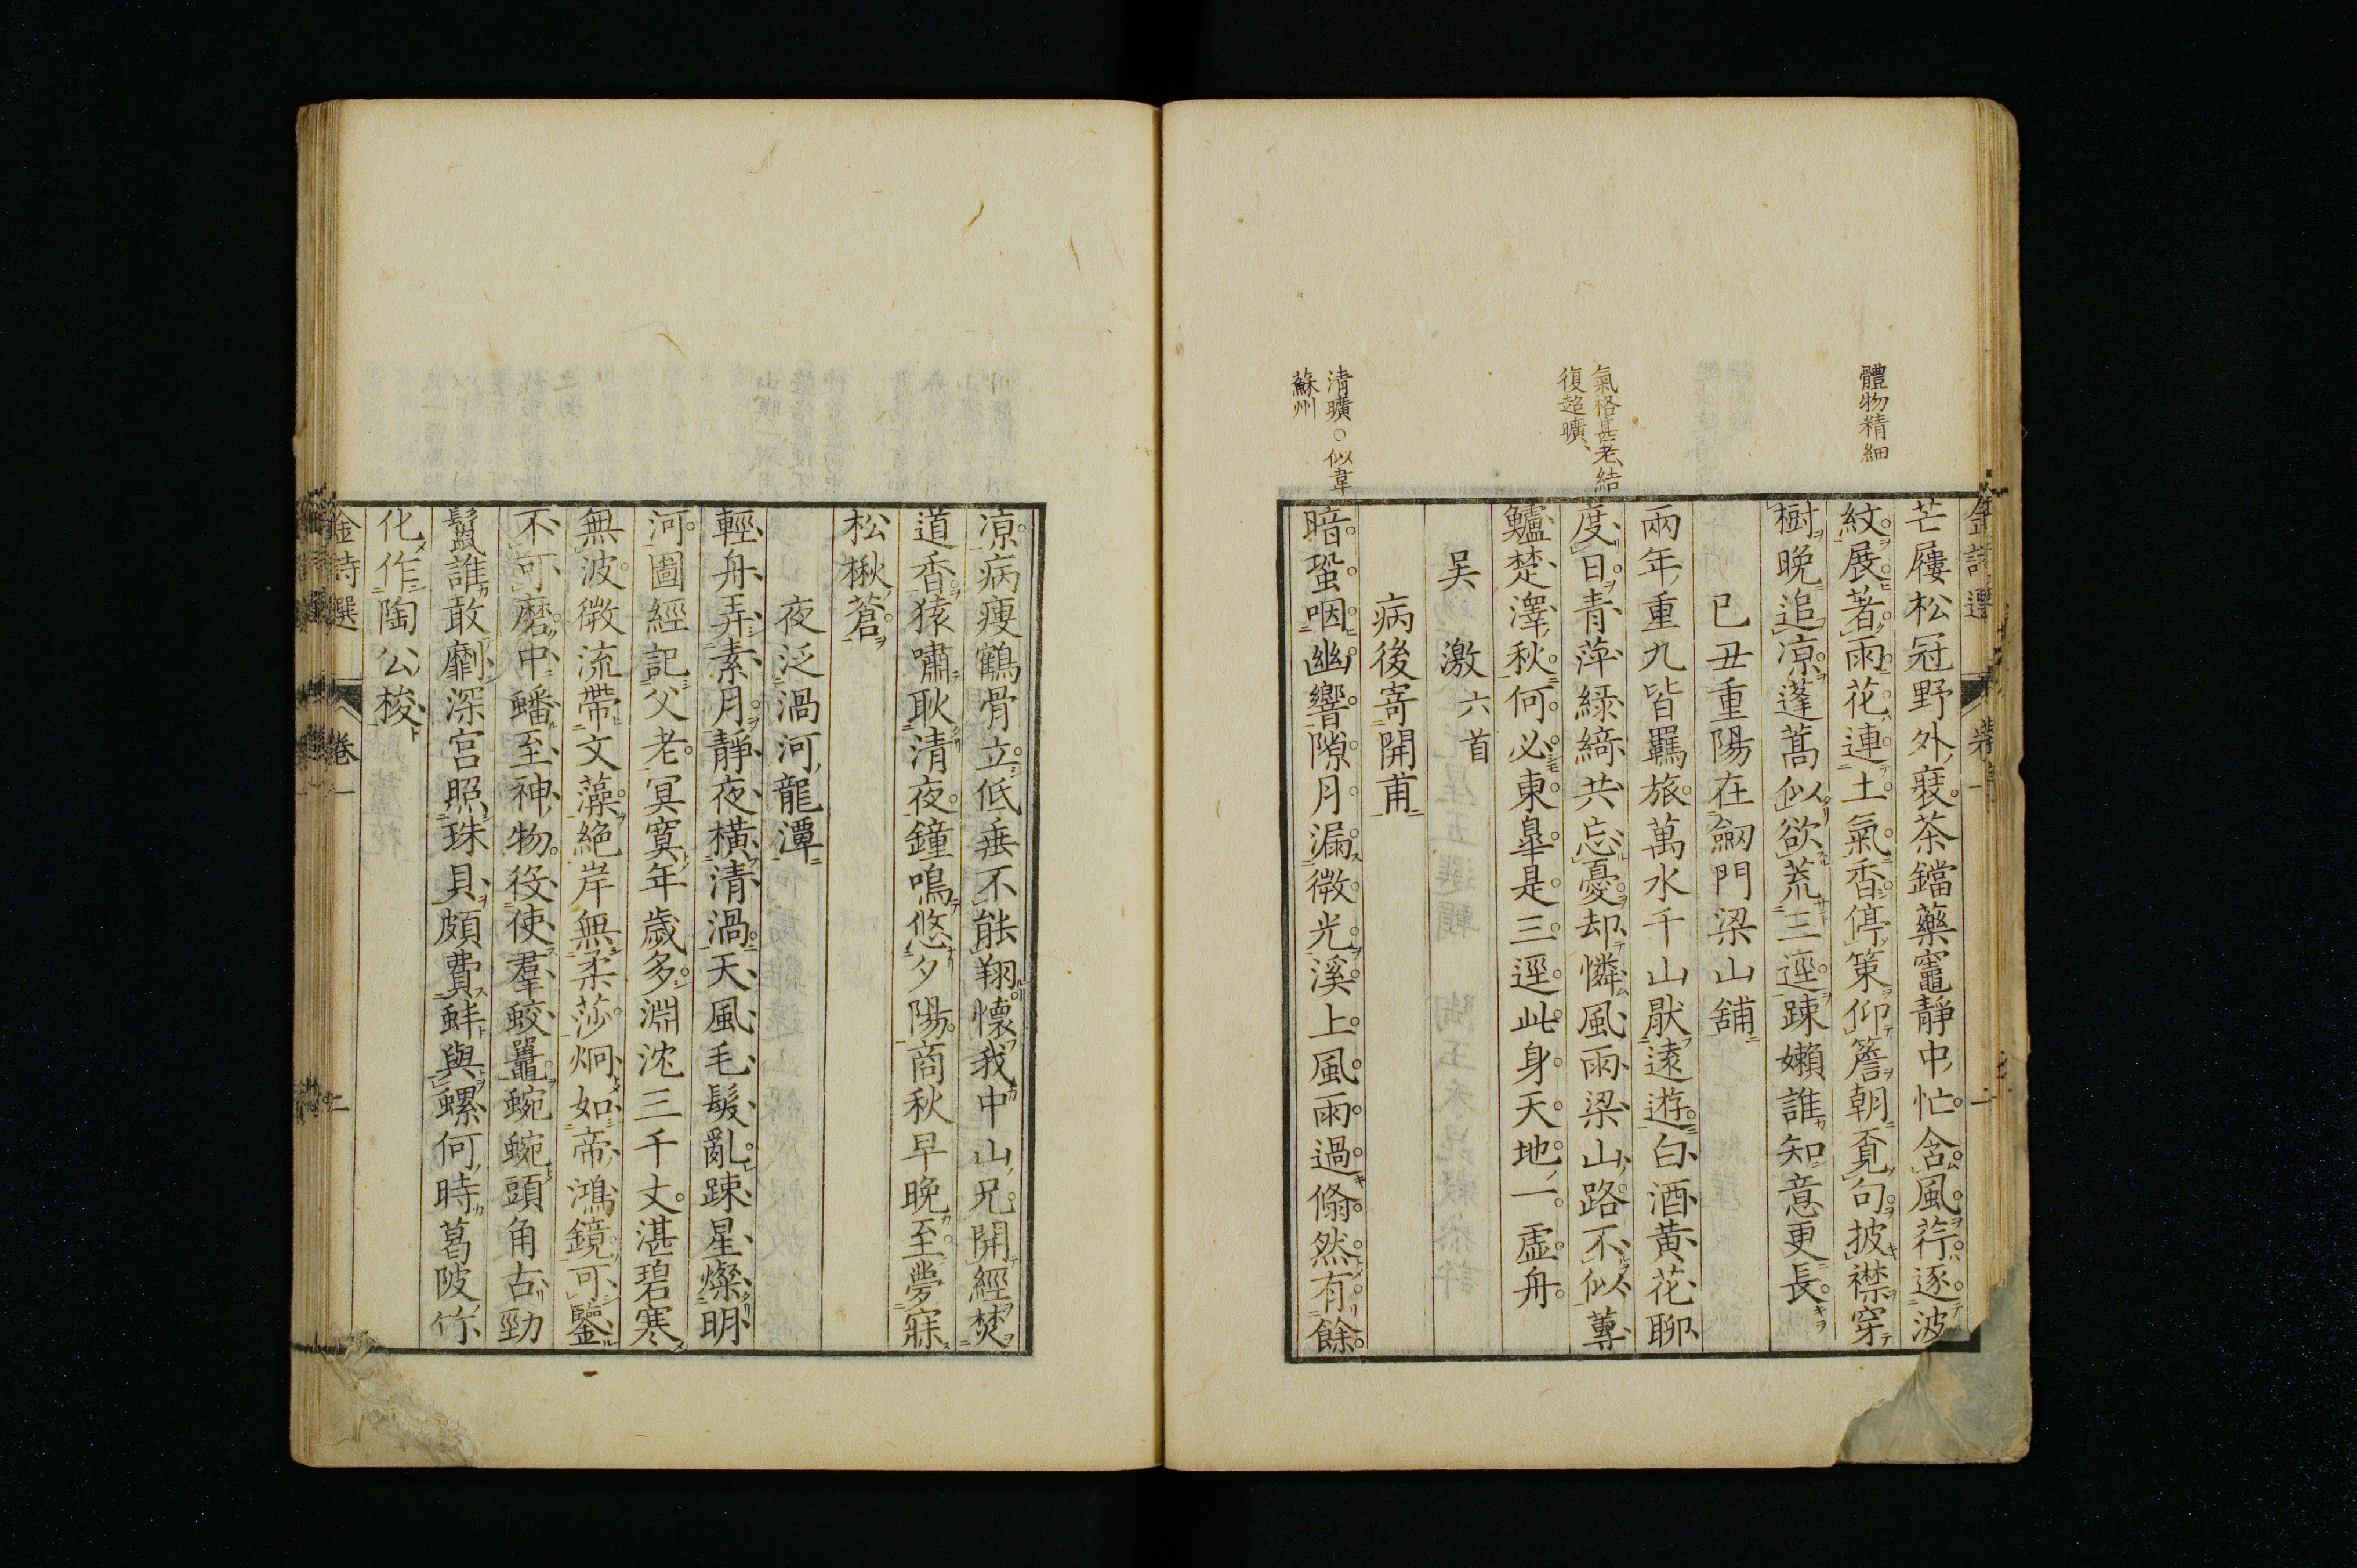 體物精細
氣格甚老、結
復超曠、
清曠○似韋
蘇州
芒屨松冠野外裝茶鐺藥竈靜中忙含風荇逐波
紋展著雨花連土氣香停策仰簷朝覓句披襟穿
樹晚追凉蓬蒿似欲荒三逕踈嬾誰知意更長
已丑重陽在劒門梁山舖
兩年重九皆羈旅萬水千山厭遠遊白酒黃花聊
度日青萍綠綺共忘憂却憐風雨梁山路不似蓴
鱸楚澤秋何必東皐是三逕此身天地一虛舟
吴激六首
病後寄開甫
暗蛩咽幽響隙月漏微光溪上風雨過翛然有餘
凉病瘦鶴骨立低垂不能翔懷我中山兄開經焚
道香猿嘯耿清夜鐘鳴悠夕陽商秋早晚至夢寐
松楸蒼
夜泛渦河龍潭
輕舟弄素月靜夜橫清渦天風毛髮亂踈星燦明
河圖經記父老冥寞年歲多淵沈三千丈湛碧寒
無波微流帶文藻絕岸無柔莎炯如帝鴻鏡可鑒
不可磨中蟠至神物役使羣蛟鼉蜿蜿頭角古勁
鬣誰敢劘深宮照珠貝頗費蚌與螺何時葛陂竹
化作陶公梭
金詩選 卷一 二